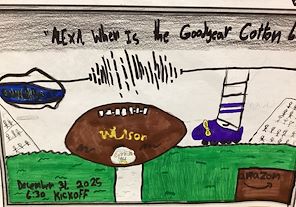 "ALEXA When Is the Goodyear Cotton
Wilson
December 31, 2025
6:30 KICKOFF
amazon